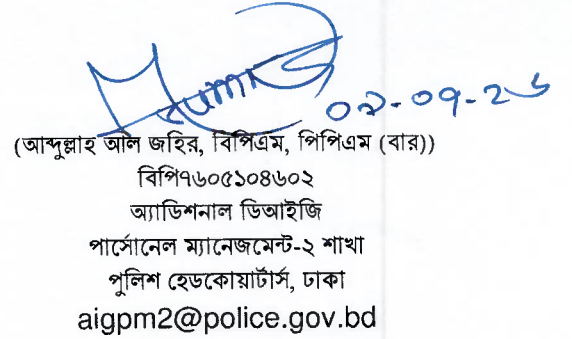 ০৯-০৭-২৬
(আব্দুল্লাহ আল জহির, বিপিএম, পিপিএম (বার))
বিপি৭৬০৫১০৪৬০২
অ্যাডিশনাল ডিআইজি
পার্সোনেল ম্যানেজমেন্ট-২ শাখা
পুলিশ হেডকোয়ার্টার্স, ঢাকা
aigpm2@police.gov.bd